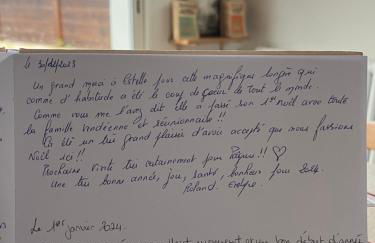 Le 30/12/2023
Un grand merci à Estelle pour cette magnifique longère qui
comme d'habitude a été le coup de cœur de tout le monde.
Comme vous me l'avez dit elle a passé son 1er noël avec toute
la famille vendéenne et réunionnaise !!
Ça été un très grand plaisir d'avoir accepté que nous fassions
Noël ici !!
Prochaine visite très certainement pour Pâques !! ♡
Une très bonne année, joie, santé, bonheur pour 2024.
Roland Evelyne.
Le 1er janvier 2024.